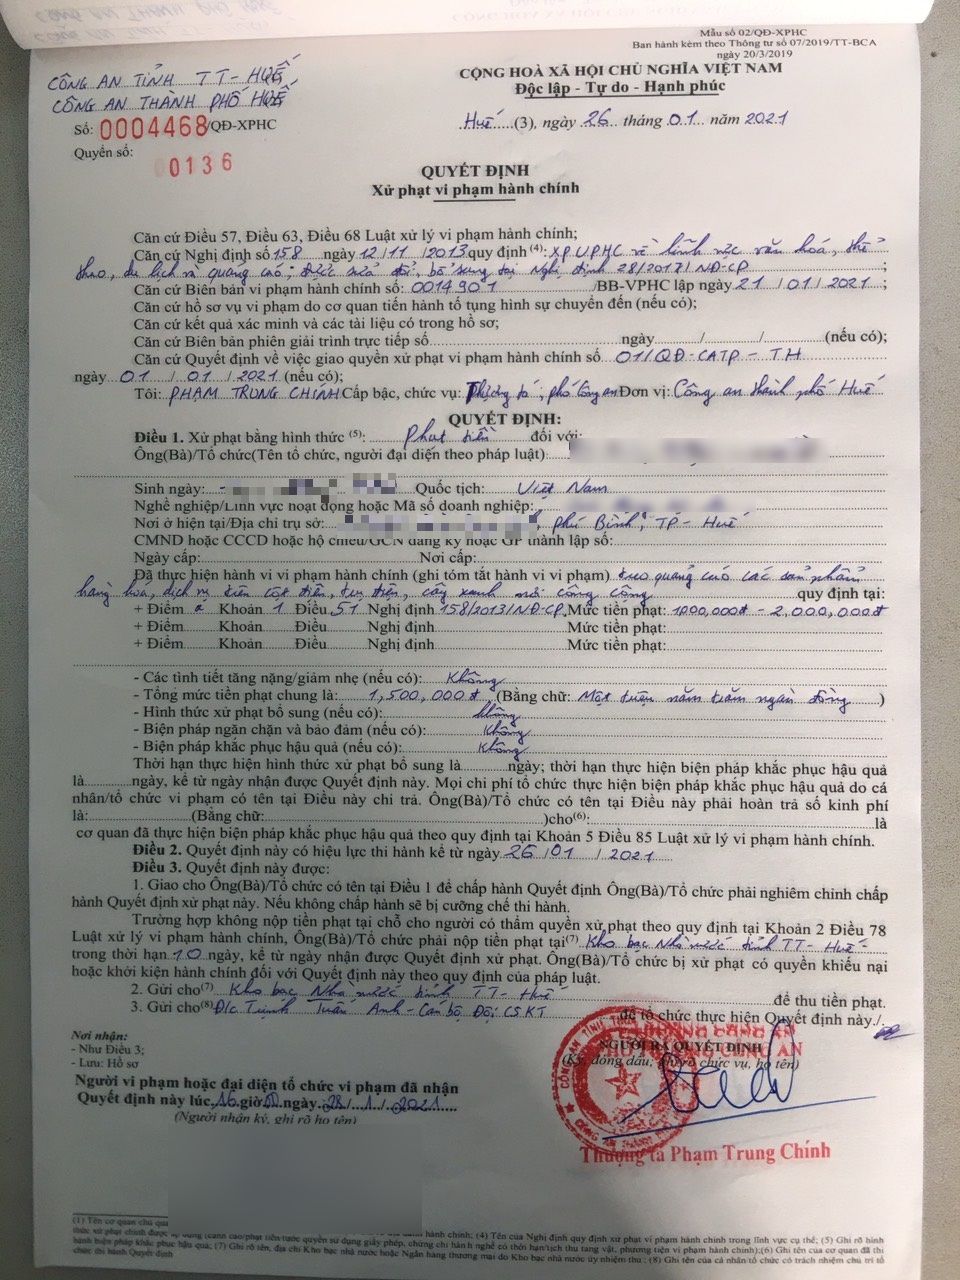 Mẫu số 02/QĐ-XPHC
Ban hành kèm theo Thông tư số 07/2019/TT-BCA
ngày 20/3/2019
CÔNG AN TỈNH TT-HUẾ
CÔNG AN THÀNH PHỐ HUẾ
Số: 0004468/QĐ-XPHC
Quyển số: 00136
CỘNG HOÀ XÃ HỘI CHỦ NGHĨA VIỆT NAM
Độc lập - Tự do - Hạnh phúc
Huế (3), ngày 26 tháng 01 năm 2021
QUYẾT ĐỊNH
Xử phạt vi phạm hành chính
Căn cứ Điều 57, Điều 63, Điều 68 Luật xử lý vi phạm hành chính;
Căn cứ Nghị định số 158 ngày 12/11/2013 quy định (4): XPVPHC về lĩnh vực văn hoá, thể
thao, du lịch và quảng cáo; được sửa đổi, bổ sung tại Nghị định 28/2017/NĐ-CP;
Căn cứ Biên bản vi phạm hành chính số: 0014901/BB-VPHC lập ngày 21/01/2021;
Căn cứ hồ sơ vụ vi phạm do cơ quan tiến hành tố tụng hình sự chuyển đến (nếu có);
Căn cứ kết quả xác minh và các tài liệu có trong hồ sơ;
Căn cứ Biên bản phiên giải trình trực tiếp số ngày / / (nếu có);
Căn cứ Quyết định về việc giao quyền xử phạt vi phạm hành chính số 01/QĐ-CATP-TH
ngày 01/01/2021 (nếu có);
Tôi: PHẠM TRUNG CHÍNH Cấp bậc, chức vụ: Thượng tá, phó Công an Đơn vị: Công an thành phố Huế
QUYẾT ĐỊNH:
Điều 1. Xử phạt bằng hình thức (5): Phạt tiền đối với:
Ông(Bà)/Tổ chức(Tên tổ chức, người đại diện theo pháp luật):
Sinh ngày: Quốc tịch: Việt Nam
Nghề nghiệp/Lĩnh vực hoạt động hoặc Mã số doanh nghiệp:
Nơi ở hiện tại/Địa chỉ trụ sở: , Phú Bình, TP-Huế
CMND hoặc CCCD hoặc hộ chiếu/GCN đăng ký hoặc GP thành lập số:
Ngày cấp: Nơi cấp:
Đã thực hiện hành vi vi phạm hành chính (ghi tóm tắt hành vi vi phạm) treo quảng cáo các sản phẩm
hàng hóa, dịch vụ trên cột điện, trụ điện, cây xanh nơi công cộng quy định tại:
+ Điểm a Khoản 1 Điều 51 Nghị định 158/2013/NĐ-CP. Mức tiền phạt: 1000,000đ - 2,000,000đ
+ Điểm Khoản Điều Nghị định Mức tiền phạt:
+ Điểm Khoản Điều Nghị định Mức tiền phạt:
- Các tình tiết tăng nặng/giảm nhẹ (nếu có): Không
- Tổng mức tiền phạt chung là: 1,500,000đ (Bằng chữ: Một triệu năm trăm ngàn đồng)
- Hình thức xử phạt bổ sung (nếu có): Không
- Biện pháp ngăn chặn và bảo đảm (nếu có): Không
- Biện pháp khắc phục hậu quả (nếu có): Không
Thời hạn thực hiện hình thức xử phạt bổ sung là ngày; thời hạn thực hiện biện pháp khắc phục hậu quả
là ngày, kể từ ngày nhận được Quyết định này. Mọi chi phí tổ chức thực hiện biện pháp khắc phục hậu quả do cá
nhân/tổ chức vi phạm có tên tại Điều này chi trả. Ông(Bà)/Tổ chức có tên tại Điều này phải hoàn trả số kinh phí
là: (Bằng chữ: )cho(6): là
cơ quan đã thực hiện biện pháp khắc phục hậu quả theo quy định tại Khoản 5 Điều 85 Luật xử lý vi phạm hành chính.
Điều 2. Quyết định này có hiệu lực thi hành kể từ ngày 26/01/2021
Điều 3. Quyết định này được:
1. Giao cho Ông(Bà)/Tổ chức có tên tại Điều 1 để chấp hành Quyết định Ông(Bà)/Tổ chức phải nghiêm chỉnh chấp
hành Quyết định xử phạt này. Nếu không chấp hành sẽ bị cưỡng chế thi hành.
Trường hợp không nộp tiền phạt tại chỗ cho người có thẩm quyền xử phạt theo quy định tại Khoản 2 Điều 78
Luật xử lý vi phạm hành chính, Ông(Bà)/Tổ chức phải nộp tiền phạt tại(7) Kho bạc Nhà nước tỉnh TT-Huế
trong thời hạn 10 ngày, kể từ ngày nhận được Quyết định xử phạt. Ông(Bà)/Tổ chức bị xử phạt có quyền khiếu nại
hoặc khởi kiện hành chính đối với Quyết định này theo quy định của pháp luật.
2. Gửi cho(7) Kho bạc Nhà nước tỉnh TT-Huế để thu tiền phạt.
3. Gửi cho(8) Đ/c Trịnh Tuấn Anh - Cán bộ Đội CSKT để tổ chức thực hiện Quyết định này./.
Nơi nhận:
- Như Điều 3;
- Lưu: Hồ sơ
NGƯỜI RA QUYẾT ĐỊNH
(Ký, đóng dấu, ghi rõ chức vụ, họ tên)
Người vi phạm hoặc đại diện tổ chức vi phạm đã nhận
Quyết định này lúc 16 giờ 00 ngày 28/1/2021
(Người nhận ký, ghi rõ họ tên)
Thượng tá Phạm Trung Chính
(1) Tên cơ quan chủ quản
(4) Tên của Nghị định quy định xử phạt vi phạm hành chính trong lĩnh vực cụ thể; (5) Ghi rõ hình
thức xử phạt chính được áp dụng (cảnh cáo/phạt tiền/tước quyền sử dụng giấy phép, chứng chỉ hành nghề có thời hạn/tịch thu tang vật, phương tiện vi phạm hành chính);(6) Ghi tên của cơ quan đã thi
hành biện pháp khắc phục hậu quả; (7) Ghi rõ tên, địa chỉ Kho bạc nhà nước hoặc Ngân hàng thương mại do Kho bạc nhà nước ủy nhiệm thu; (8) Ghi tên của cá nhân/tổ chức có trách nhiệm chủ trì tổ
chức thi hành Quyết định